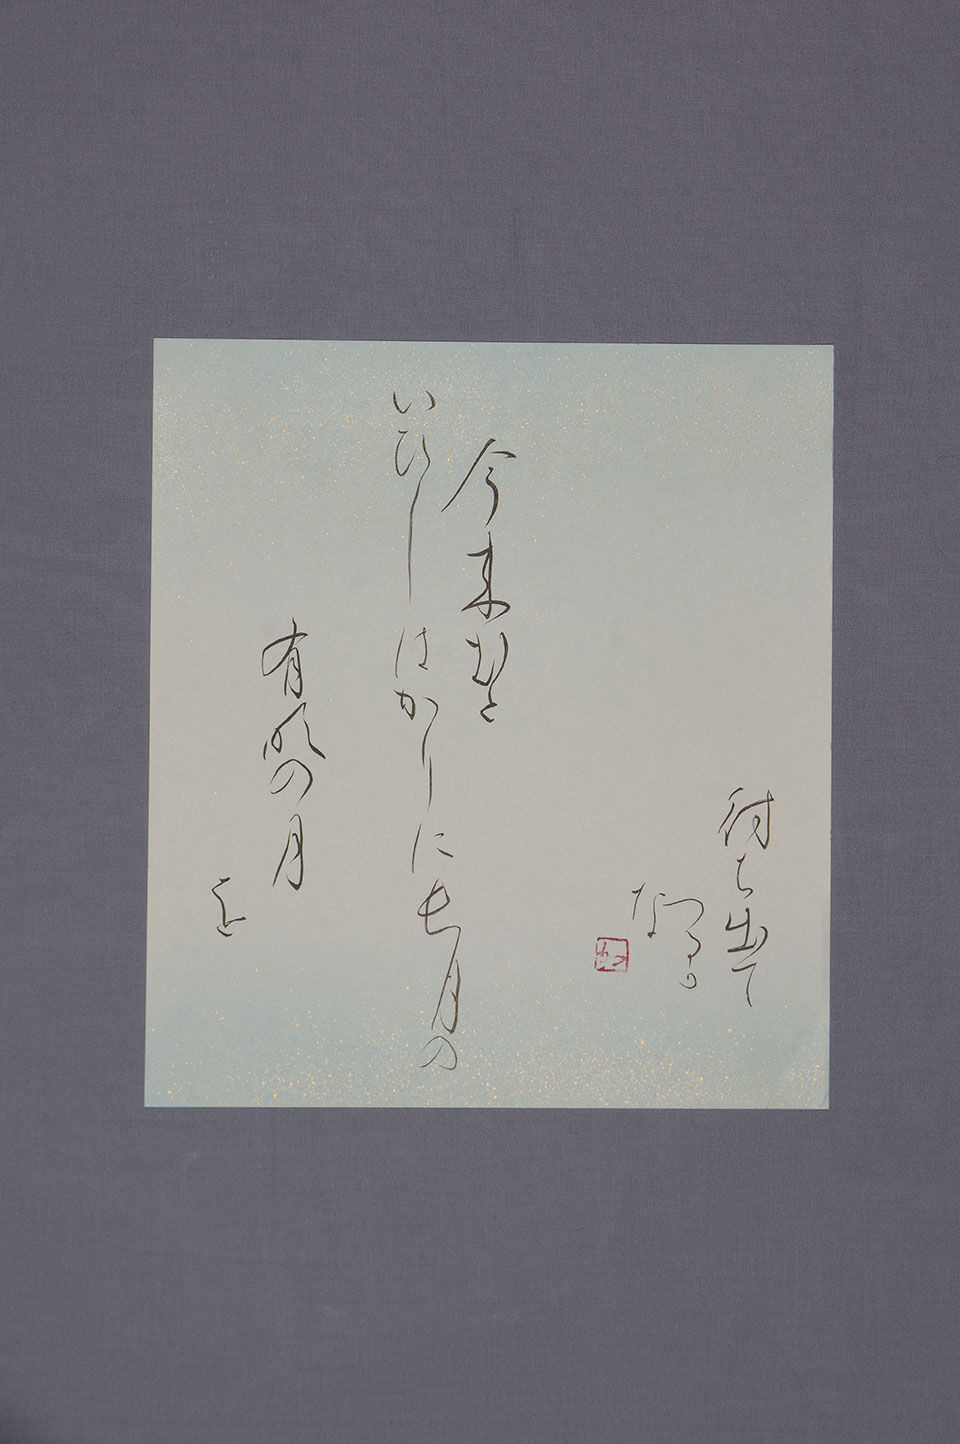 今来むと
いひしはかりに長月の
有明の月
を
待ち出て
つるか
な